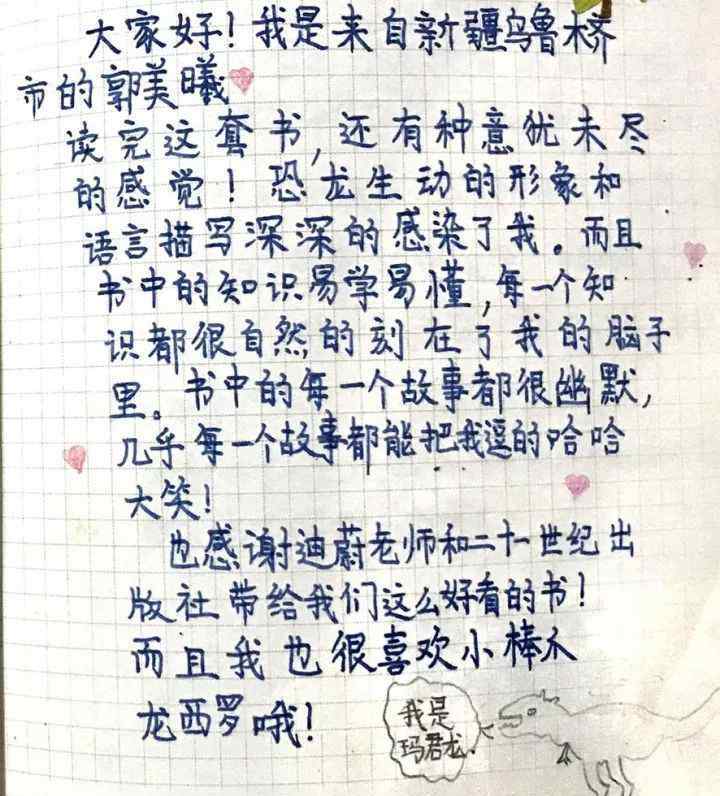 大家好！我是来自新疆乌鲁木齐
市的郭美曦
读完这套书，还有种意犹未尽
的感觉！恐龙生动的形象和
语言描写深深的感染了我。而且
书中的知识易学易懂，每一个知
识都很自然的刻在了我的脑子
里。书中的每一个故事都很幽默，
几乎每一个故事都能把我逗的哈哈
大笑！
也感谢迪蔚老师和二十一世纪出
版社带给我们这么好看的书！
而且我也很喜欢小棒爪
龙西罗哦！
我是
玛君龙.